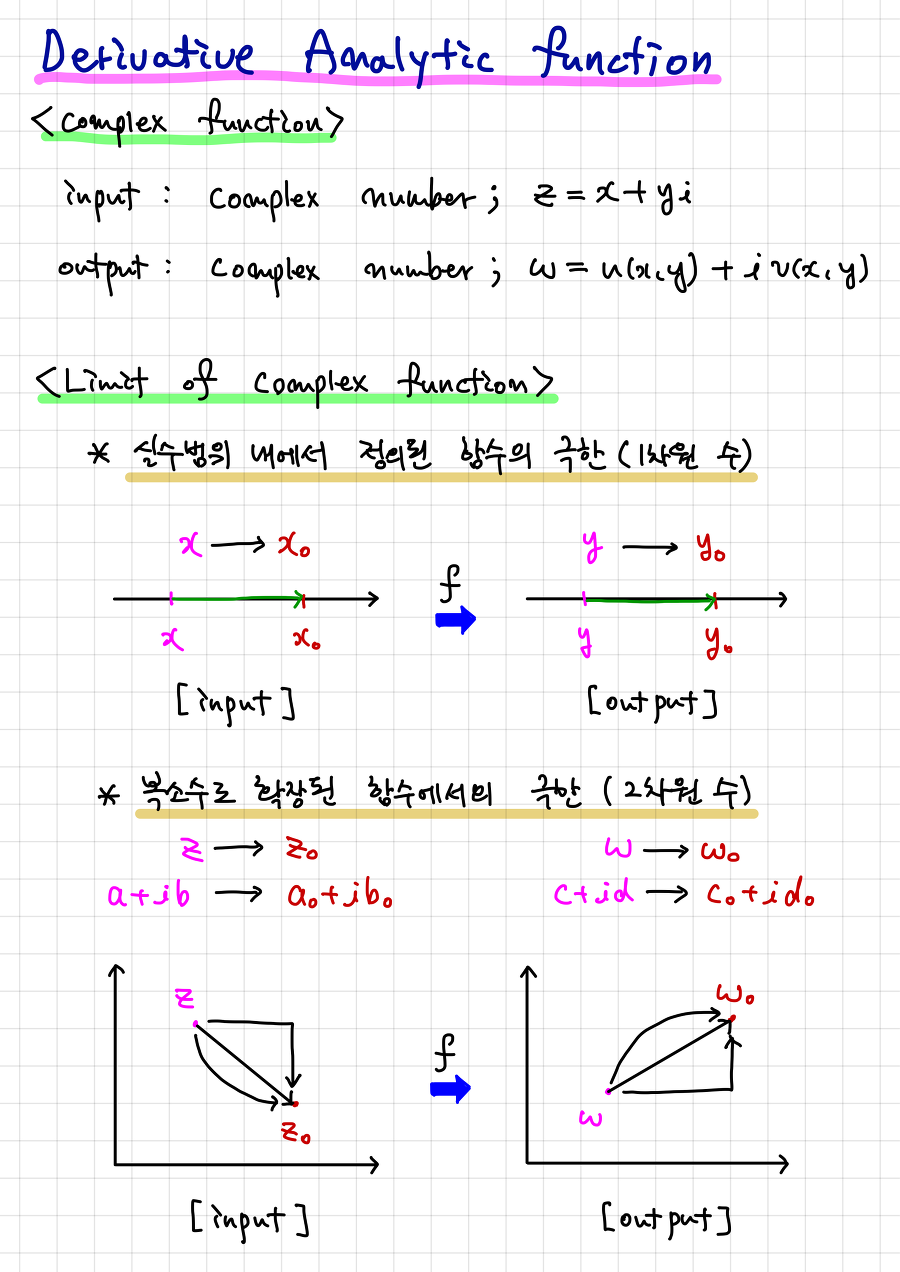 Derivative Analytic function
<complex function>
input : complex number ; z = x + yi
output : complex number ; ω = u(x,y) + i v(x,y)
<Limit of complex function>
* 실수범위 내에서 정의된 함수의 극한 (1차원 수)
x → x₀ y → y₀
f
x x₀ y y₀
[input] [output]
* 복소수로 확장된 함수에서의 극한 (2차원 수)
z → z₀ ω → ω₀
a+ib → a₀+ib₀ c+id → c₀+id₀
z ω₀
f
z₀ ω
[input] [output]